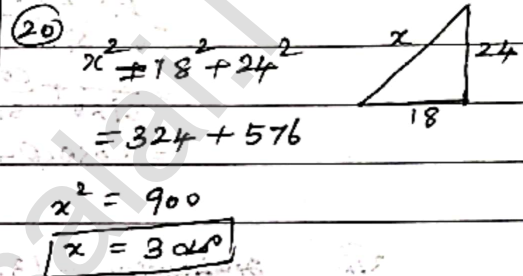 20
x² = 18² + 24²
x
24
18
= 324 + 576
x² = 900
x = 30